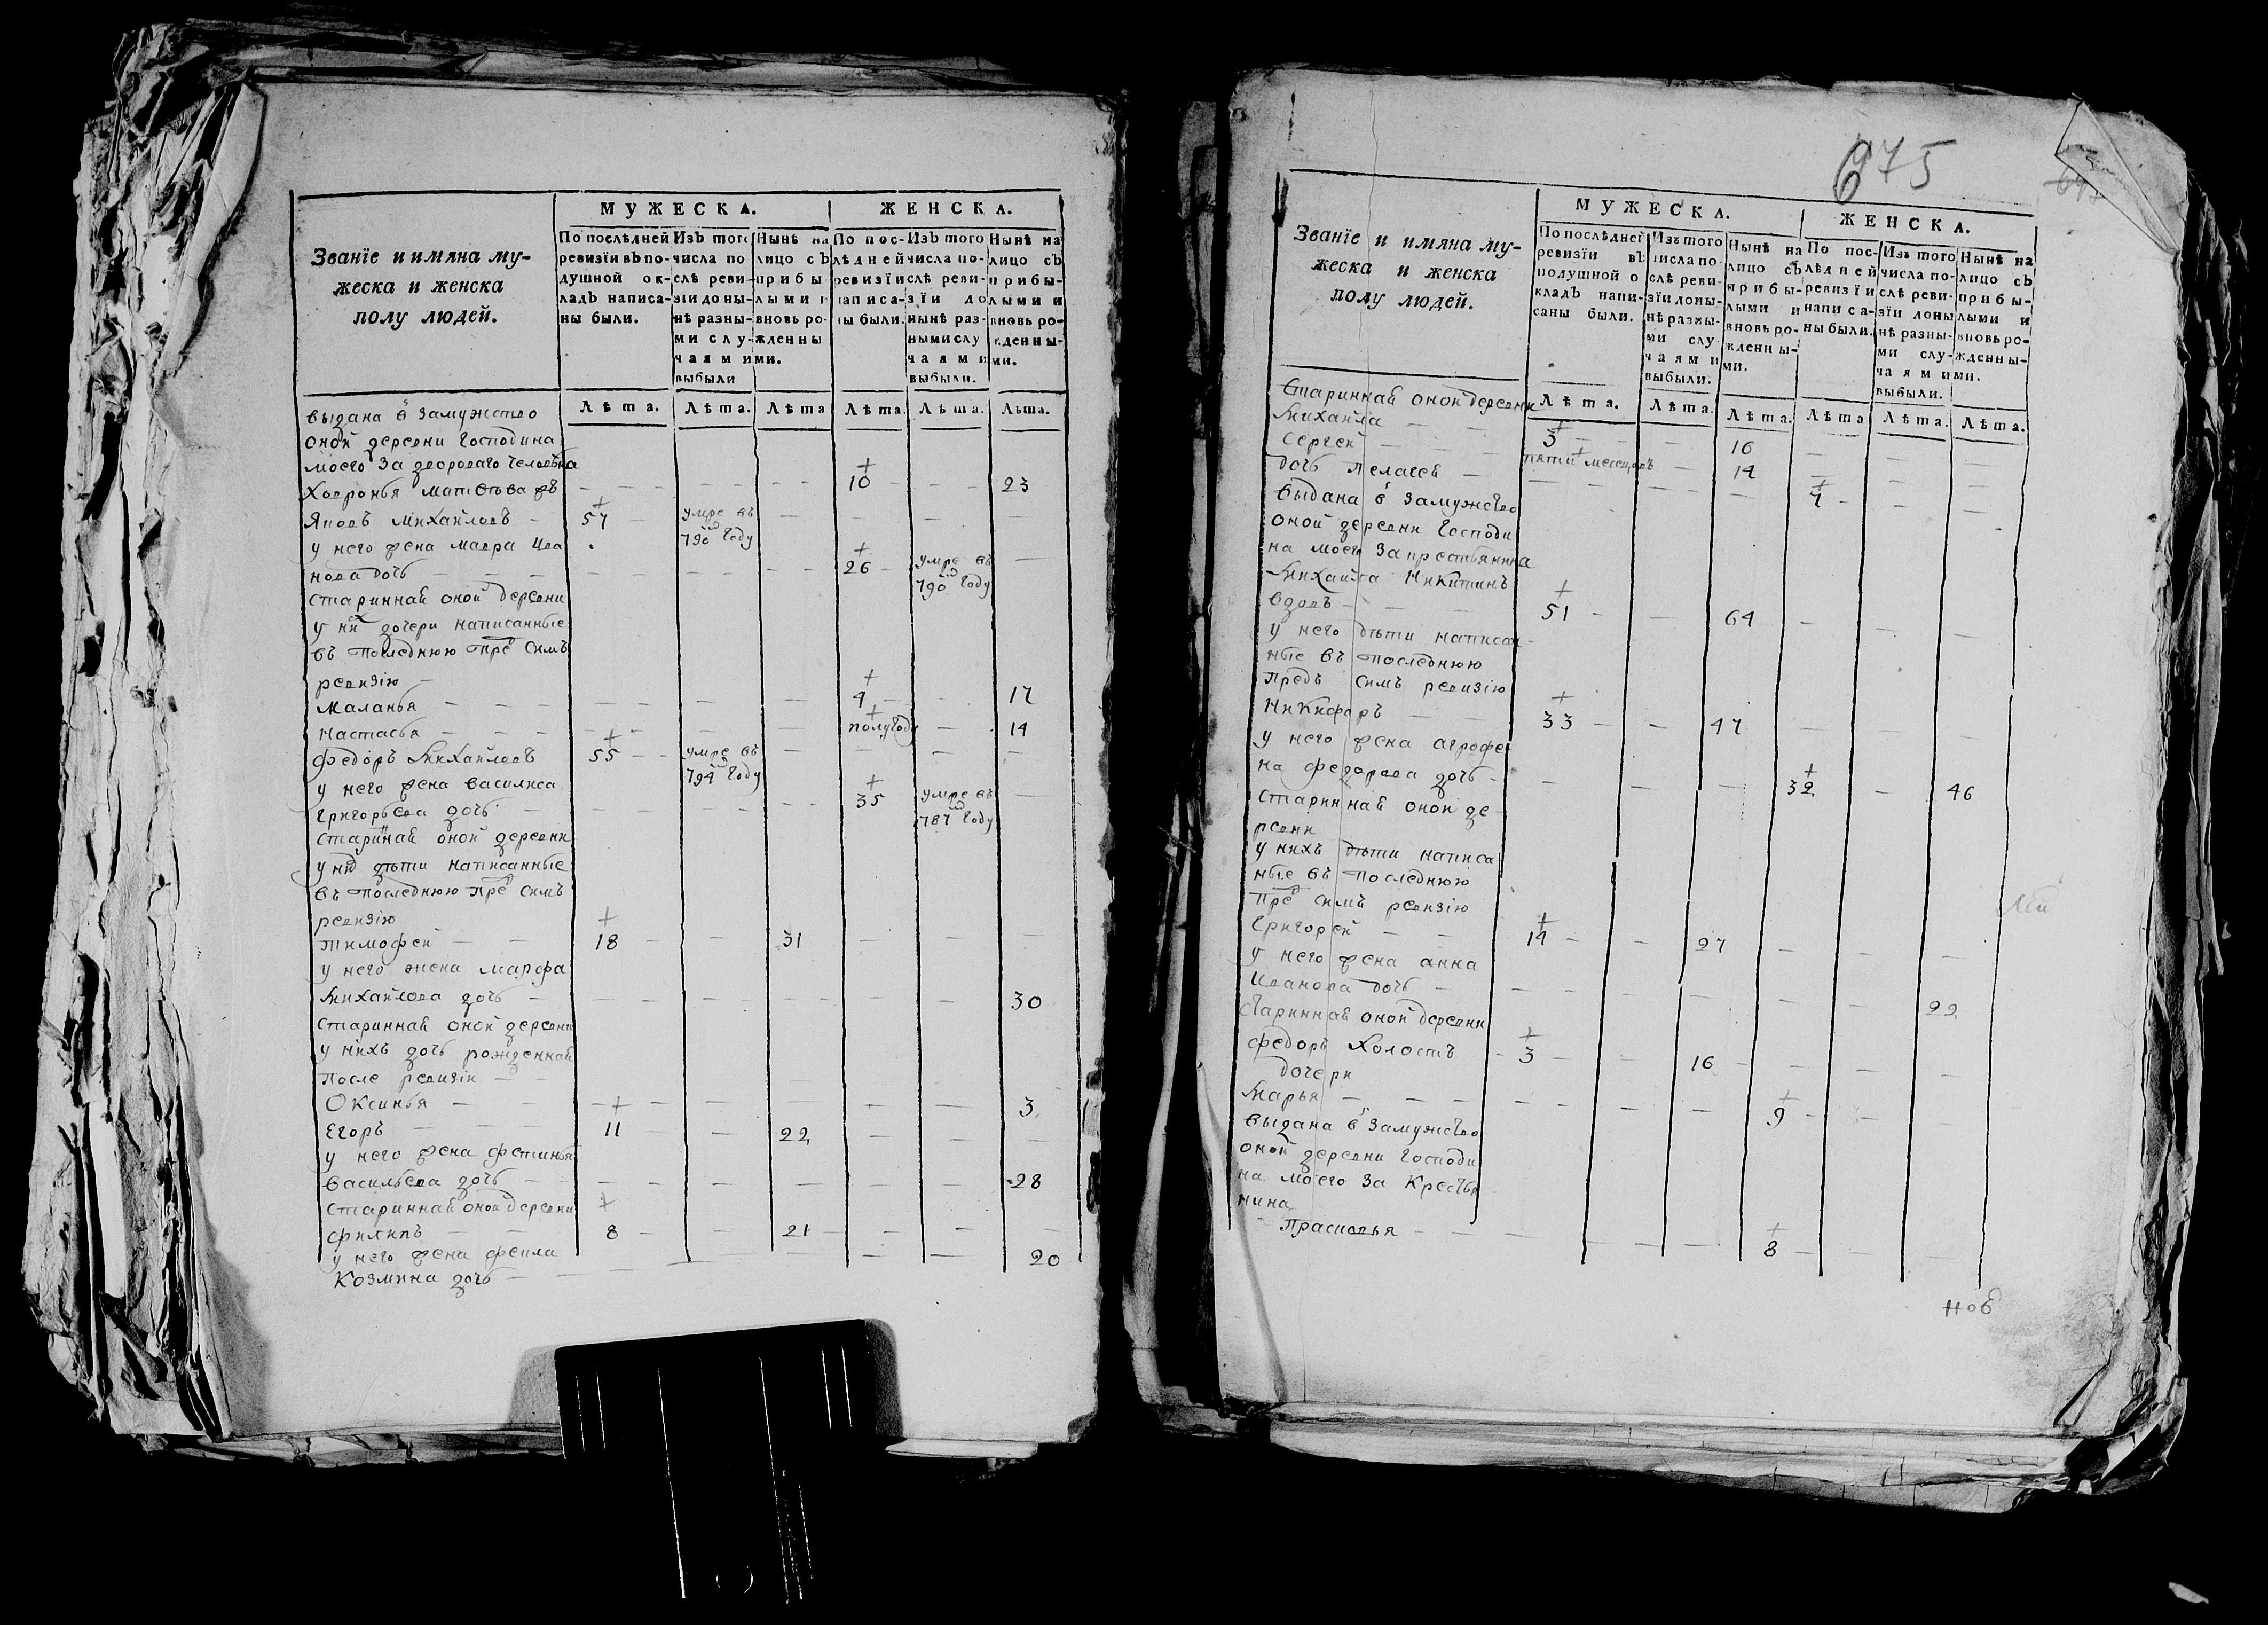 МУЖЕСКА. ЖЕНСКА.
Званїе и имяна му-
жеска и женска
полу людей.
По послѣдней ревизїи въ по-душной ок-ладъ написа-ны были.
Изъ того числа по слѣ реви-зїи доны-нѣ разны-ми слу-чаями выбыли
Нынѣ на лицо съ прибы лыми и вновь ро-жденны ми.
По пос-лѣдней ревизїи написа-ны были.
Изъ того числа по-слѣ реви-зїи до нынѣ раз-ными слу чаями выбыли.
Нынѣ на лицо съ прибы-лыми и вновь ро-жденны-ми.
Лѣта. Лѣта. Лѣта Лѣта. Лѣта. Лѣта.
выдана в замужство
оной деревни Господина
моего за двороваго человѣка
Ховронья Матвѣва дч — 10 — 23
Яковъ Михайловъ — 57 — умре въ 790 году
у него жена Мавра Ива
нова дочь — 26 — умре въ 790 году
стариннай оной деревни
у них дочери написанные
въ последнюю пред симъ
ревизїю
Маланья — 4 — 17
Настасья — полугоду — 14
Федоръ Михайловъ 55 — умре въ 794 году
у него жена Василиса
Григорьева дочь — 35 умре въ 787 году
стариннай оной деревни
у них дѣти написанные
въ последнюю пред симъ
ревизїю
Тимофей — 18 — 31
у него жена Марфа
Михайлова дочь — 30
стариннай оной деревни
у нихъ дочь рожденная
после ревизїи —
Оксинья — 3
Егоръ — 11 — 22
у него жена Фетинья
Васильева дочь — 28
стариннай оной деревни
Филипъ — 8 — 21
у него жена Фекла
Козмина дочь — 20
675
МУЖЕСКА. ЖЕНСКА.
Званїе и имяна му-
жеска и женска
полу людей.
По послѣдней ревизїи въ подушной о кладъ напи-саны были.
Изъ того числа по-слѣ реви-зїи доны-нѣ разны-ми слу чаями выбыли.
Нынѣ на лицо съ прибы-лыми и вновь ро-жденны-ми.
По пос-лѣдней ревизїи написа-ны были.
Изъ того числа по-слѣ реви-зїи доны нѣ разны-ми слу-чаями выбыли.
Нынѣ на лицо съ прибы-лыми и вновь ро-жденны-ми.
Лѣта. Лѣта. Лѣта. Лѣта Лѣта. Лѣта.
Стариннай оной деревни
Михайла — 3 — 16
Сергей — пяти месецовъ — 14
дочь Пелагея — 7
выдана в замужство
оной деревни Господи
на моего за крестьянина
Михайла Никитинъ
вдовъ — 51 — 64
у него дѣти написан
ные въ последнюю
предъ симъ ревизїю
Никифоръ — 33 — 47
у него жена Агрофе
на Федорова дочь — 32 — 46
стариннай оной де
ревни
у нихъ дѣти написа
ные въ последнюю
пред симъ ревизїю
Григорей — 14 — 27
у него жена Анна
Иванова дочь — 22
стариннай оной деревни
Федоръ холостъ — 3 — 16
дочери
Марья — 9
выдана в замужство
оной деревни Господи
на моего за крестья
нина
Прасковья — 8